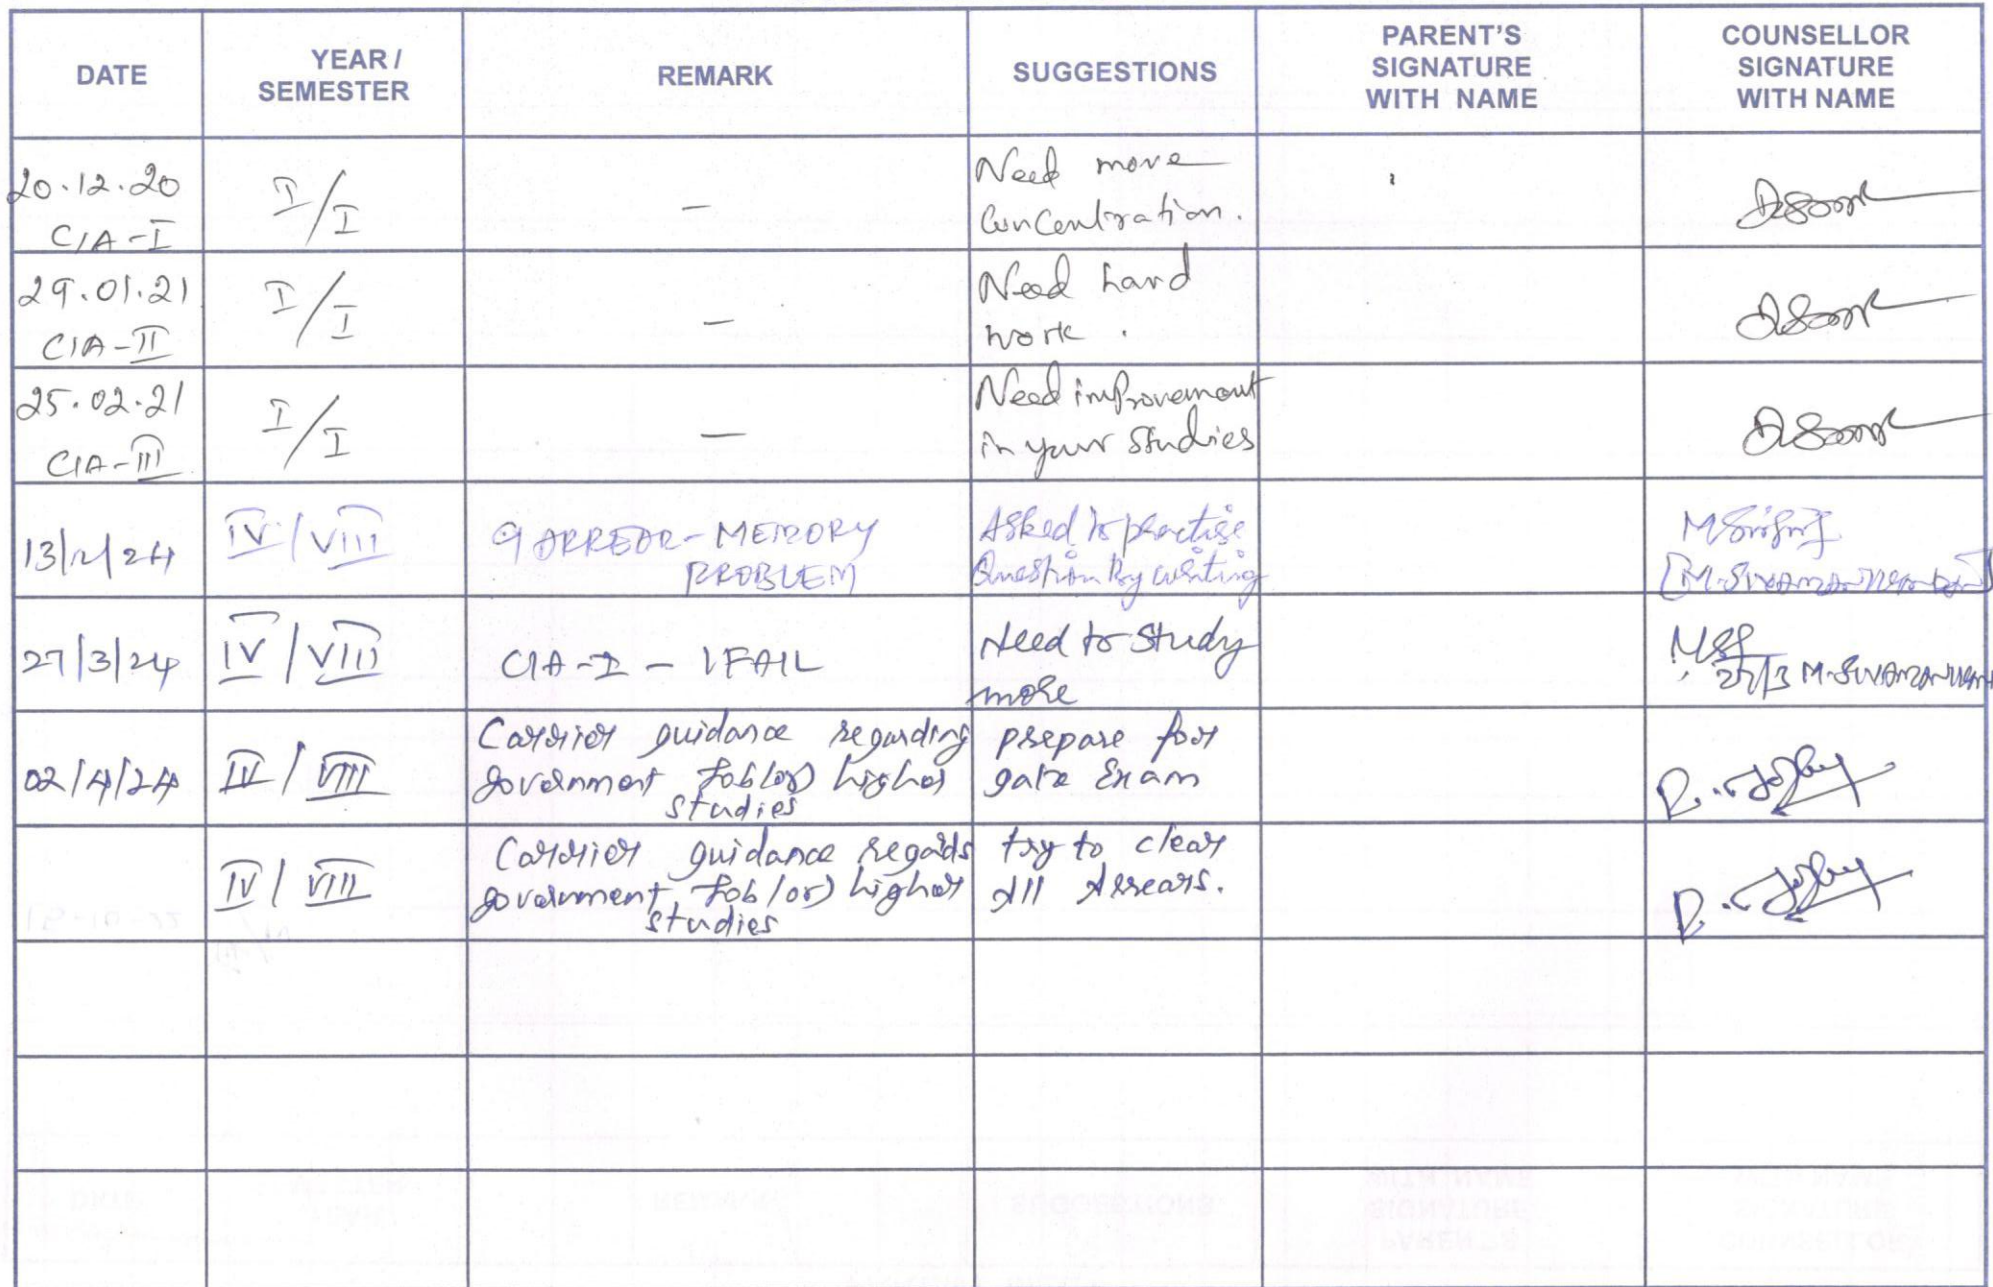 DATE
YEAR /
SEMESTER
REMARK
SUGGESTIONS
PARENT'S
SIGNATURE
WITH NAME
COUNSELLOR
SIGNATURE
WITH NAME
20.12.20
CIA-I
I/I
—
Need more
Concentration.
29.01.21
CIA-II
I/I
—
Need hard
work.
25.02.21
CIA-III
I/I
—
Need improvement
in your studies
13/2/24
IV/VIII
9 ARREAR-MEMORY
PROBLEM
Asked to practise
Question by writing
27/3/24
IV/VIII
CIA-I - 1FAIL
Need to study
more
27/3
02/4/24
IV/VIII
Carrier guidance regarding
government Job(or) higher
studies
prepare for
gate Exam
IV/VIII
Carrier guidance regards
government Job(or) higher
studies
try to clear
All Arrears.